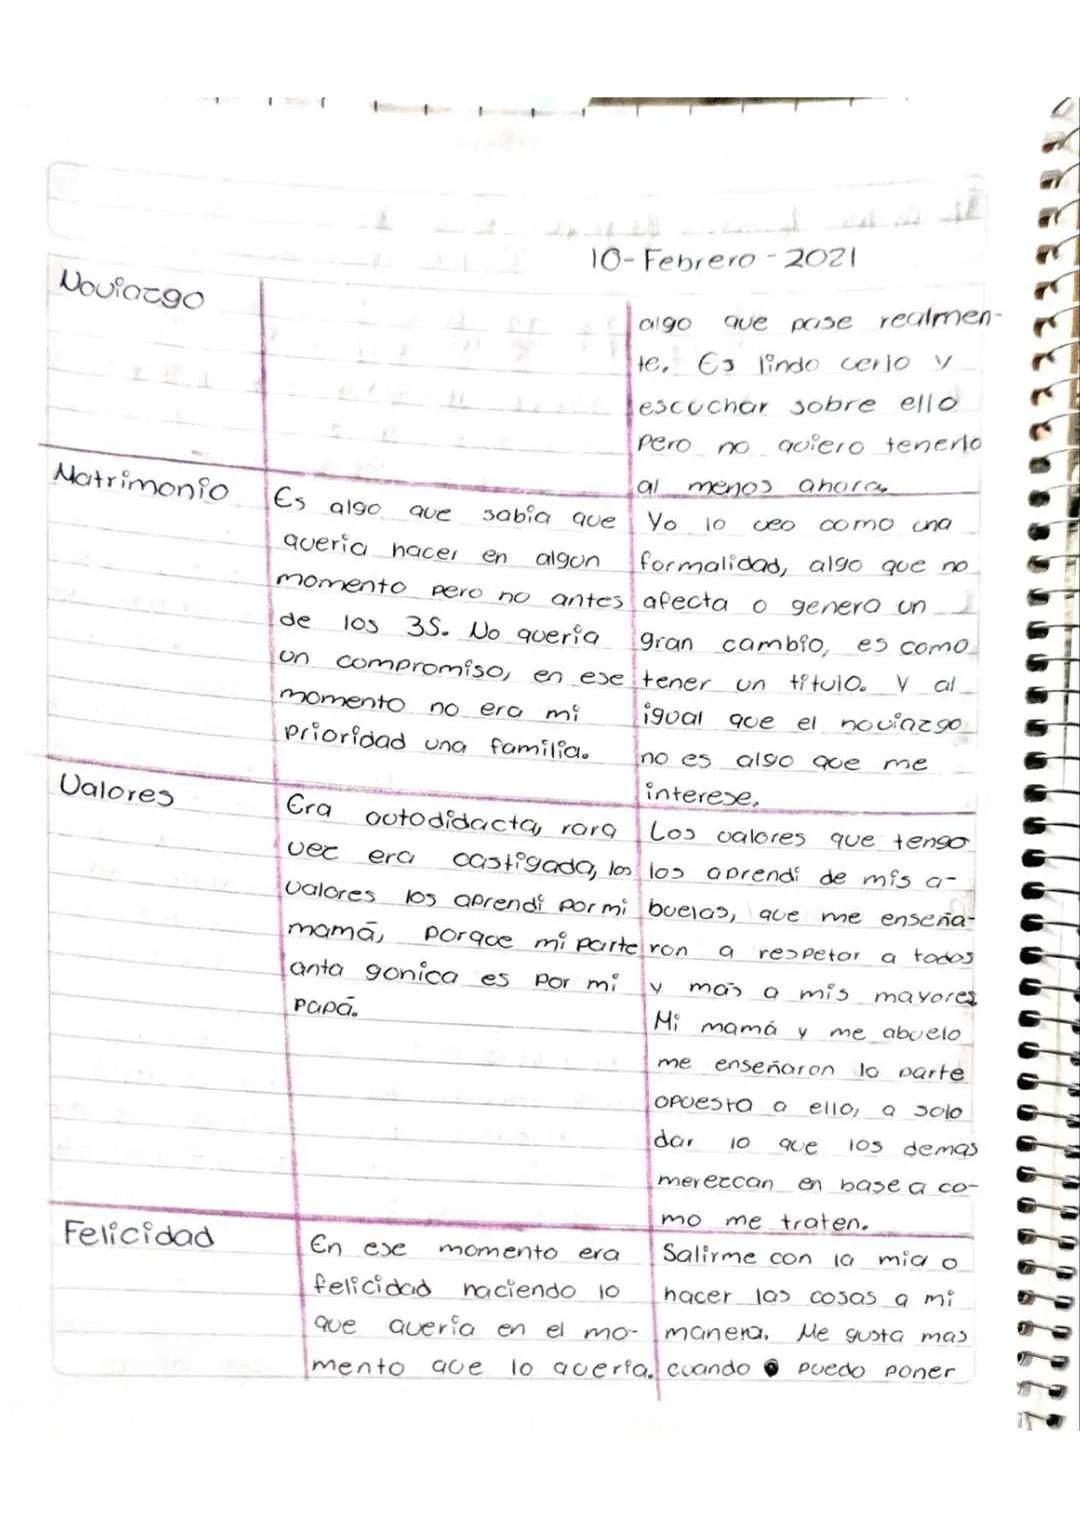 10-Febrero-2021
Noviazgo
algo que pase realmen-
te. Es lindo cerlo y
escuchar sobre ello
pero no quiero tenerlo
al menos ahora.
Matrimonio
Es algo que sabía que
quería hacer en algun
momento pero no antes
de los 35. No quería
un compromiso, en ese
momento no era mi
prioridad una familia.
Yo lo veo como una
formalidad, algo que no
afecta o genera un
gran cambio, es como
tener un título. Y al
igual que el noviazgo
no es algo que me
interese.
Valores
Era autodidacta, rara
vez era castigada, los
valores los aprendí por mi
mamá, porque mi parte
anta gonica es por mi
papá.
Los valores que tengo
los aprendí de mis a-
buelas, que me enseña-
ron a respetar a todos
y más a mis mayores
Mi mamá y me abuelo
me enseñaron la parte
opuesta a ello, a solo
dar lo que los demas
merezcan en base a co-
mo me traten.
Felicidad
En ese momento era
felicidad haciendo lo
que quería en el mo-
mento que lo quería.
Salirme con la mia o
hacer las cosas a mi
manera. Me gusta mas
cuando puedo poner